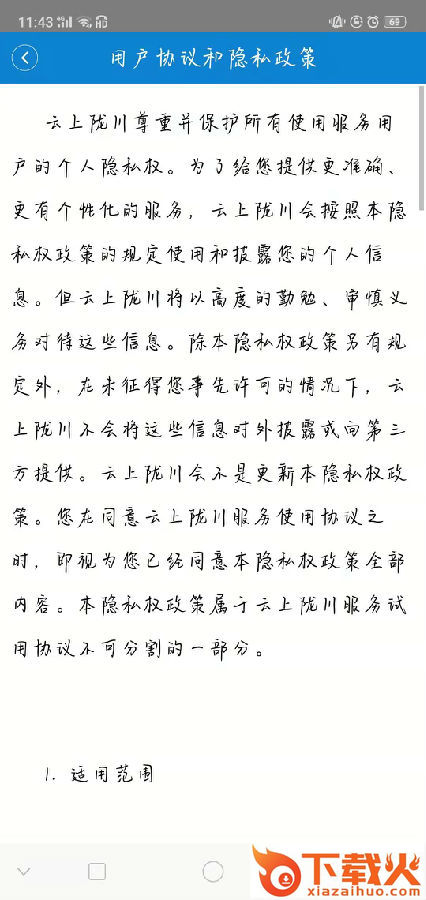 11:43
69
用户协议和隐私政策
云上陇川尊重并保护所有使用服务用
户的个人隐私权。为了给您提供更准确、
更有个性化的服务，云上陇川会按照本隐
私权政策的规定使用和披露您的个人信
息。但云上陇川将以高度的勤勉、审慎义
务对待这些信息。除本隐私权政策另有规
定外，在未征得您事先许可的情况下，云
上陇川不会将这些信息对外披露或向第三
方提供。云上陇川会不是更新本隐私权政
策。您在同意云上陇川服务使用协议之
时，即视为您已经同意本隐私权政策全部
内容。本隐私权政策属于云上陇川服务试
用协议不可分割的一部分。
1. 适用范围
下载火
xiazaihuo.com